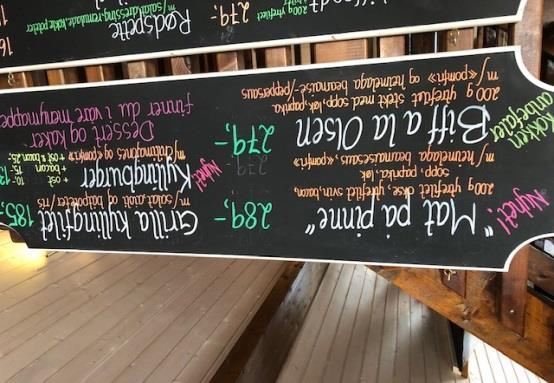 Nyhet!
"Mat på pinne" 289,-
200g ytrefilet okse, ytrefilet svin, bacon,
sopp, paprika, løk
m/ heimelaga bearnaisesaus «pomfri»
Kokken
anbefaler
Biff a la Olsen 279,-
200 g ytrefilet stekt med sopp, løk, paprika
m/ «pomfri» og heimelaga bearnaise-/peppersaus
Grilla kyllingfilet 185,-
m/salat, aioli og båtpoteter/ris
Nyhet!
Kyllingburger
og «pomfri»
+ ost 10,-
+ bacon 15,-
+ ost & bacon 25,-
Dessert og kaker
finner du i våre menymapper
200g ytrefilet
279,-
Rødspette
m/salat, dressing, remulade, kokte poteter